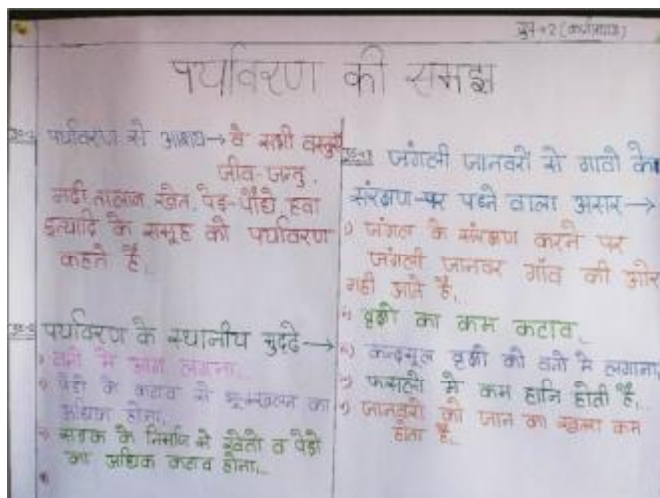 ग्रुप-2 (कर्णप्रयाग)
पर्यावरण की समझ
पर्यावरण से आशय→ वे सभी वस्तुएँ
जीव-जन्तु,
नदी, तालाब, खेत, पेड़-पौधे, हवा
इत्यादि के समूह को पर्यावरण
कहते है,,
पर्यावरण के स्थानीय मुद्दे→
वनो मे आग लगना,,
पेड़ो के कटाव से भू-स्खलन का
अधिक होना,,
सड़क के निर्माण से खेतो व पेड़ो
का अधिक कटाव होना,,
जंगली जानवरो से गावो के
संरक्षण पर पड़ने वाला असर→
जंगल के संरक्षण करने पर
जंगली जानवर गाँव की ओर
नही आते है,,
वृक्षो का कम कटाव,,
कन्दमूल वृक्षो को वनो मे लगाना,,
फसलो मे कम हानि होती है,,
जानवरो की जान का खतरा कम
होता है,,